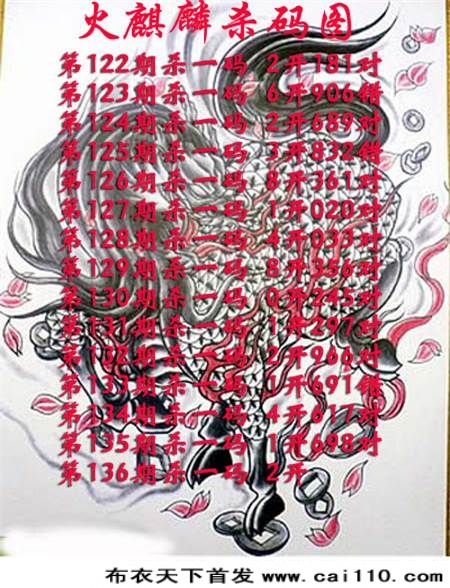 火麒麟杀码图
第122期杀一码 2开181对
第123期杀一码 6开906错
第124期杀一码 2开689对
第125期杀一码 3开832错
第126期杀一码 8开361对
第127期杀一码 1开020对
第128期杀一码 4开033对
第129期杀一码 8开356对
第130期杀一码 0开245对
第131期杀一码 1开297对
第132期杀一码 2开966对
第133期杀一码 1开691错
第134期杀一码 4开617对
第135期杀一码 1开698对
第136期杀一码 2开
布衣天下首发 www.cai110.com